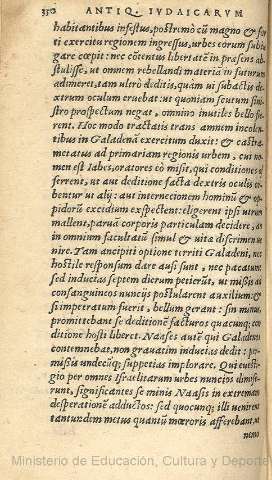 350 ANTIQ. IVDAICARVM
habitantibus infestus, postremò cũ magno & for
ti exercitu regionem ingressus, urbes eorum subiu
gare cœpit: nec cõtentus libertatẽ in præsens ab-
stulisse, ut omnem rebellandi materiã in futurum
adimeret, tam ultrò deditis, quàm ui subactis de-
xtrum oculum eruebat: ut quoniam scutum sini-
stro prospectum negat, omnino inutiles bello fie-
rent. Hoc modo tractatis trans amnem incolen-
tibus in Galadenã exercitum duxit: & castra
metatus ad primariam regionis urbem, cui no-
men est Iabes, oratores eò misit, qui conditiones of
ferrent, ut aut deditione facta dextris oculis or-
bentur ut alij: aut internecionem hominũ & op-
pidorũ excidium expectent: eligerent ipsi utrum
mallent, parua corporis particulam decidere, an
in omnium facultatũ simul & uita discrimen ue
nire. Tam ancipiti optione territi Galadeni, nec
hostile responsum dare ausi sunt, nec pacatum:
sed inducias septem dierum petierũt, ut missis ad
consanguineos nuncijs postularent auxilium: &
si impetratum fuerit, bellum gerant: sin minus,
promittebant se deditionẽ facturos quacunq; con
ditione hosti liberet. Naases autẽ qui Galadenos
contemnebat, non grauatim inducias dedit: per-
misitq́ undecũq; suppetias implorare. Qui euesti-
gio per omnes Israelitarum urbes nuncios dimise-
runt, significantes se minis Naasis in extremam
desperationẽ adductos: sed quocunq; illi uenirent
tantundem metus quantũ mœroris afferebant, ut
nemo
Ministerio de Educación, Cultura y Deporte